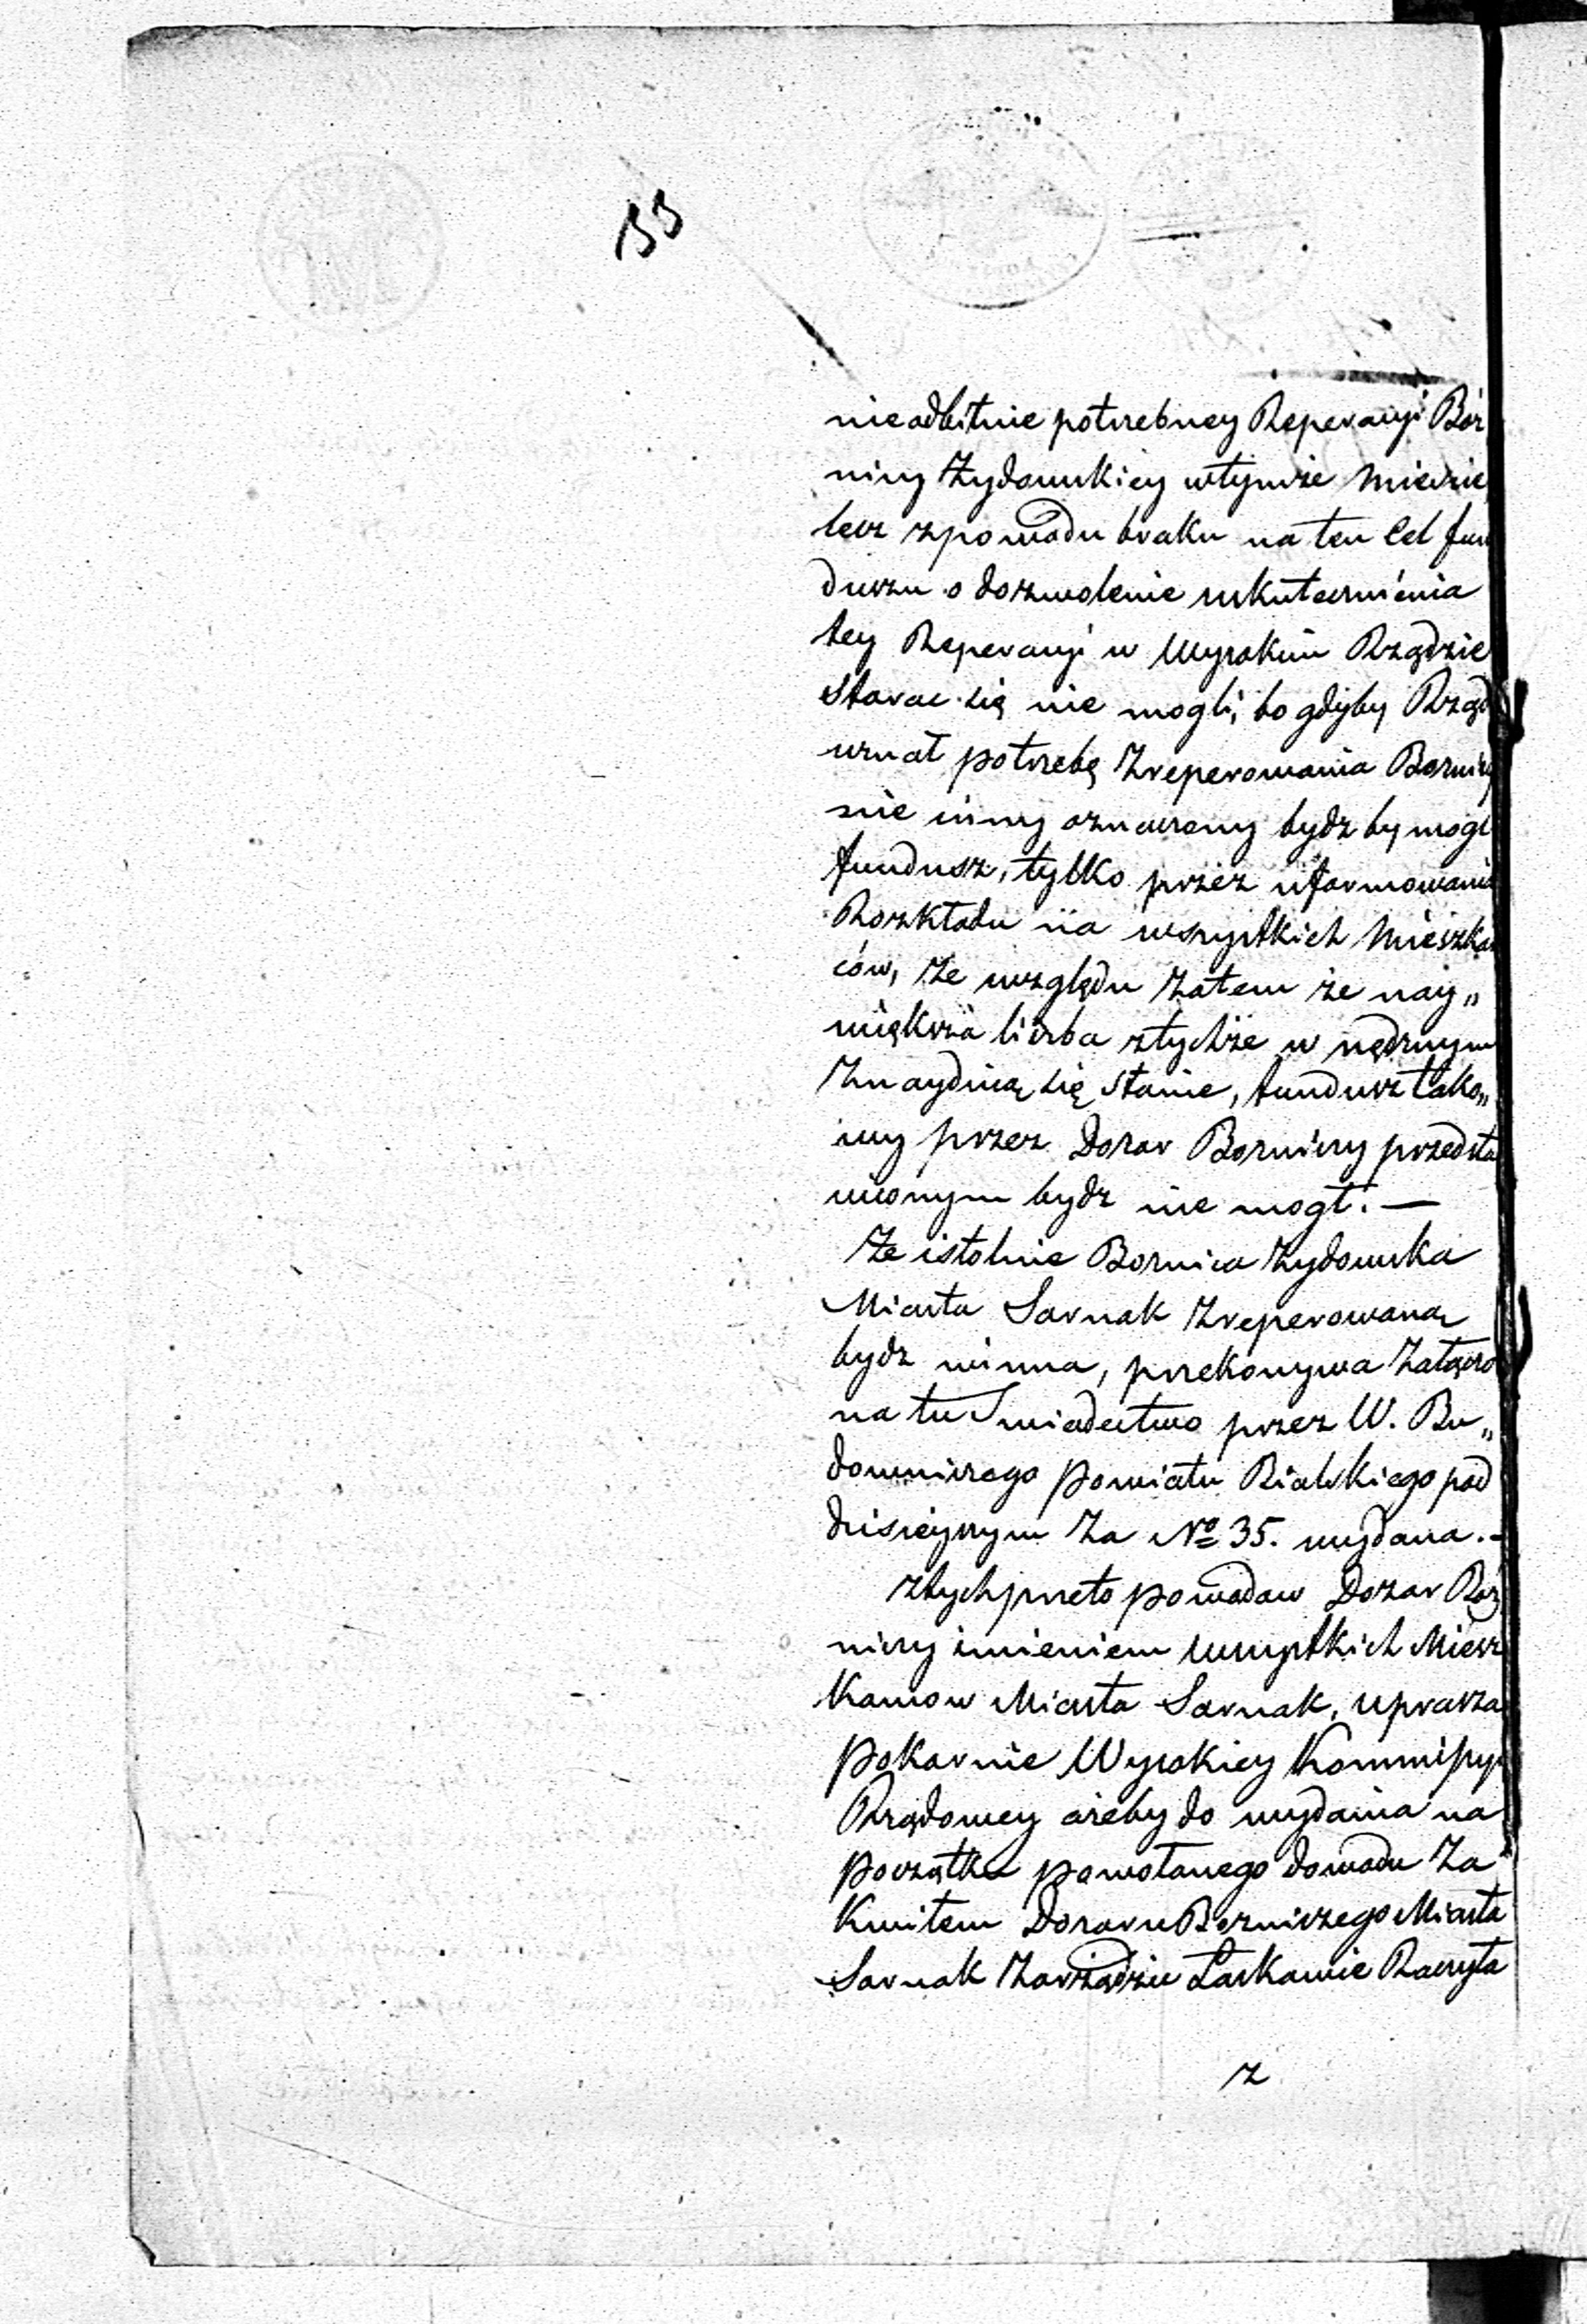 133
nieodbitnie potrzebney Reperacyi Boz
nicy Żydowskiey wtymże Mieście
lecz zpowodu braku na ten Cel fun
duszu o dozwolenie uskutecznienia
tey Reperacyi w Wysokim Rządzie
Starac się nie mogli, bo gdyby Rząd
uznał potrzebę Zreperowania Boznicy
nie inny oznaczony bydz by mogł
fundusz, tylko przez uformowanie
Rozkładu na wszystkich Mieszkań
ców, Ze względu Zatem że nay„
większa liczba ztychże w nędznym
Znayduią się Stanie, fundusz tako„
wy przez Dozor Boznicy przedsta
wionym bydz nie mogł. —
Ze istotnie Boznica Zydowska
Miasta Sarnak Zreperowaną
bydz winna, przekonywa Załączo
na tu Swiadectwo przez W. Bu„
downiczego Powiatu Bialskiego pod
dzisieyszym Za No 35. wydana. -
Ztych przeto powodow Dozor Boż
nicy imieniem wszystkich Miesz
kancow Miasta Sarnak, uprasza
pokornie Wysokiey Kommissyi
Rządowey ażeby do wydania na
początku powołanego dowodu Za
Kwitem Dozoru Bozniczego Miasta
Sarnak Zarządzic Łaskawie Raczyła
z